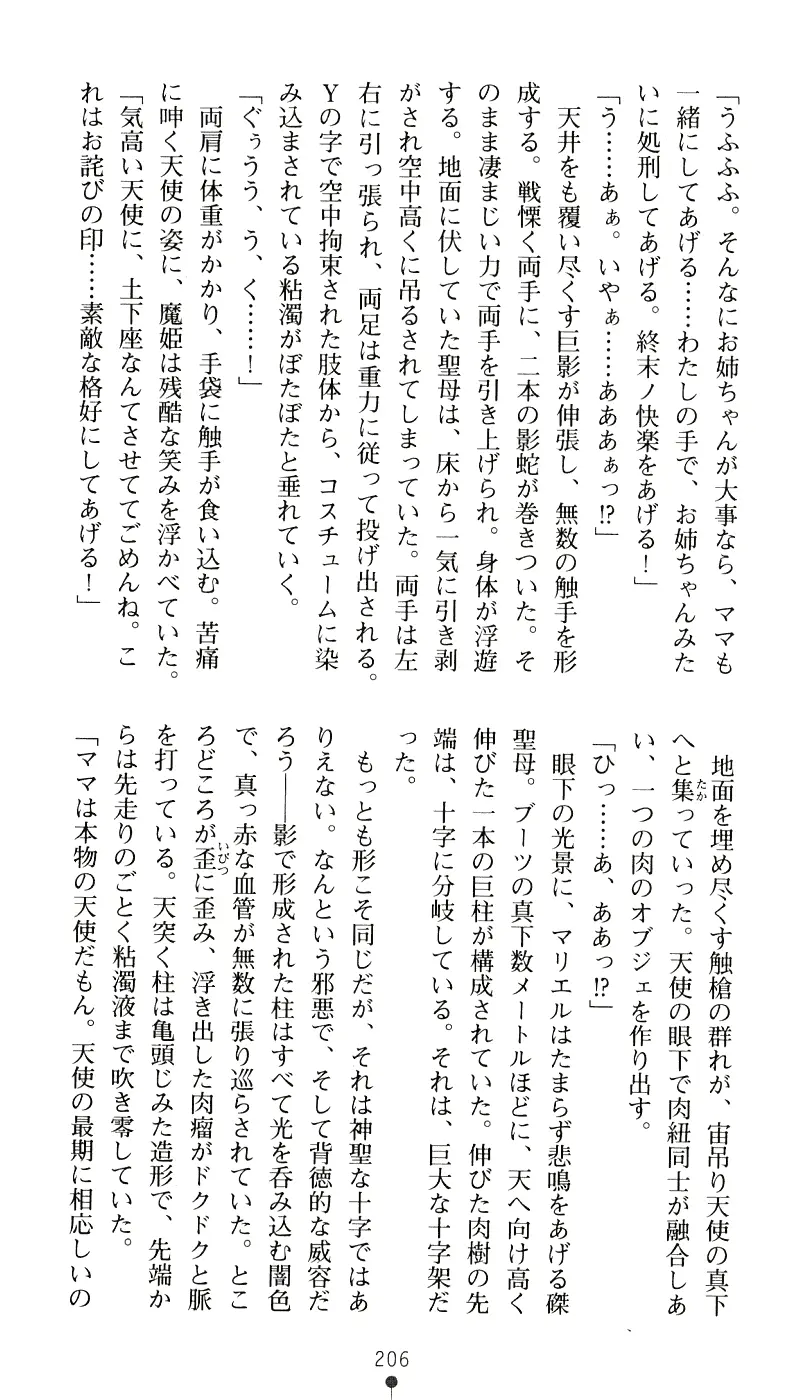 「うふふふ。そんなにお姉ちゃんが大事なら、ママも
一緒にしてあげる……わたしの手で、お姉ちゃんみた
いに処刑してあげる。終末ノ快楽をあげる！」
「う……あぁ。いやぁ……あああぁっ!?」
　天井をも覆い尽くす巨影が伸張し、無数の触手を形
成する。戦慄く両手に、二本の影蛇が巻きついた。そ
のまま凄まじい力で両手を引き上げられ。身体が浮遊
する。地面に伏していた聖母は、床から一気に引き剥
がされ空中高くに吊るされてしまっていた。両手は左
右に引っ張られ、両足は重力に従って投げ出される。
Ｙの字で空中拘束された肢体から、コスチュームに染
み込まされている粘濁がぼたぼたと垂れていく。
「ぐぅうう、う、く……！」
　両肩に体重がかかり、手袋に触手が食い込む。苦痛
に呻く天使の姿に、魔姫は残酷な笑みを浮かべていた。
「気高い天使に、土下座なんてさせててごめんね。こ
れはお詫びの印……素敵な格好にしてあげる！」
　地面を埋め尽くす触槍の群れが、宙吊り天使の真下
へと集たかっていった。天使の眼下で肉紐同士が融合しあ
い、一つの肉のオブジェを作り出す。
「ひっ……あ、ああっ!?」
　眼下の光景に、マリエルはたまらず悲鳴をあげる磔
聖母。ブーツの真下数メートルほどに、天へ向け高く
伸びた一本の巨柱が構成されていた。伸びた肉樹の先
端は、十字に分岐している。それは、巨大な十字架だ
った。
　もっとも形こそ同じだが、それは神聖な十字ではあ
りえない。なんという邪悪で、そして背徳的な威容だ
ろう――影で形成された柱はすべて光を呑み込む闇色
で、真っ赤な血管が無数に張り巡らされていた。とこ
ろどころが歪いびつに歪み、浮き出した肉瘤がドクドクと脈
を打っている。天突く柱は亀頭じみた造形で、先端か
らは先走りのごとく粘濁液まで吹き零していた。
「ママは本物の天使だもん。天使の最期に相応しいの
206